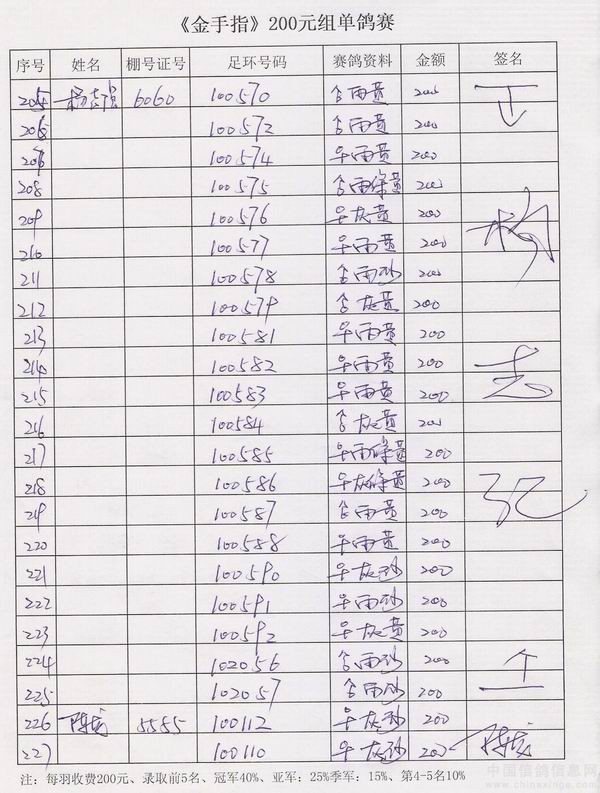 《金手指》200元组单鸽赛
序号 姓名 棚号证号 足环号码 赛鸽资料 金额 签名
205 杨志强 6060 100570 合雨黄 200
206 100572 合雨黄 200
207 100574 早雨黄 200
208 100575 合雨條黄 200
209 100576 早灰黄 200
210 100577 早雨黄 200
211 100578 合雨砂 200
212 100579 合灰黄 200
213 100581 早雨黄 200
214 100582 早雨黄 200
215 100583 早雨黄 200
216 100584 合灰黄 200
217 100585 早雨條黄 200
218 100586 早灰條黄 200
219 100587 合雨黄 200
220 100588 早雨黄 200
221 100590 早灰砂 200
222 100591 早雨砂 200
223 100592 早灰黄 200
224 102056 合雨砂 200
225 102057 合雨砂 200
226 5585 100112 早灰砂 200
227 100110 早灰砂 200
注：每羽收费200元、录取前5名、冠军40%、亚军：25%季军：15%、第4-5名10%
中国信鸽信息网
www.chinaxinge.com